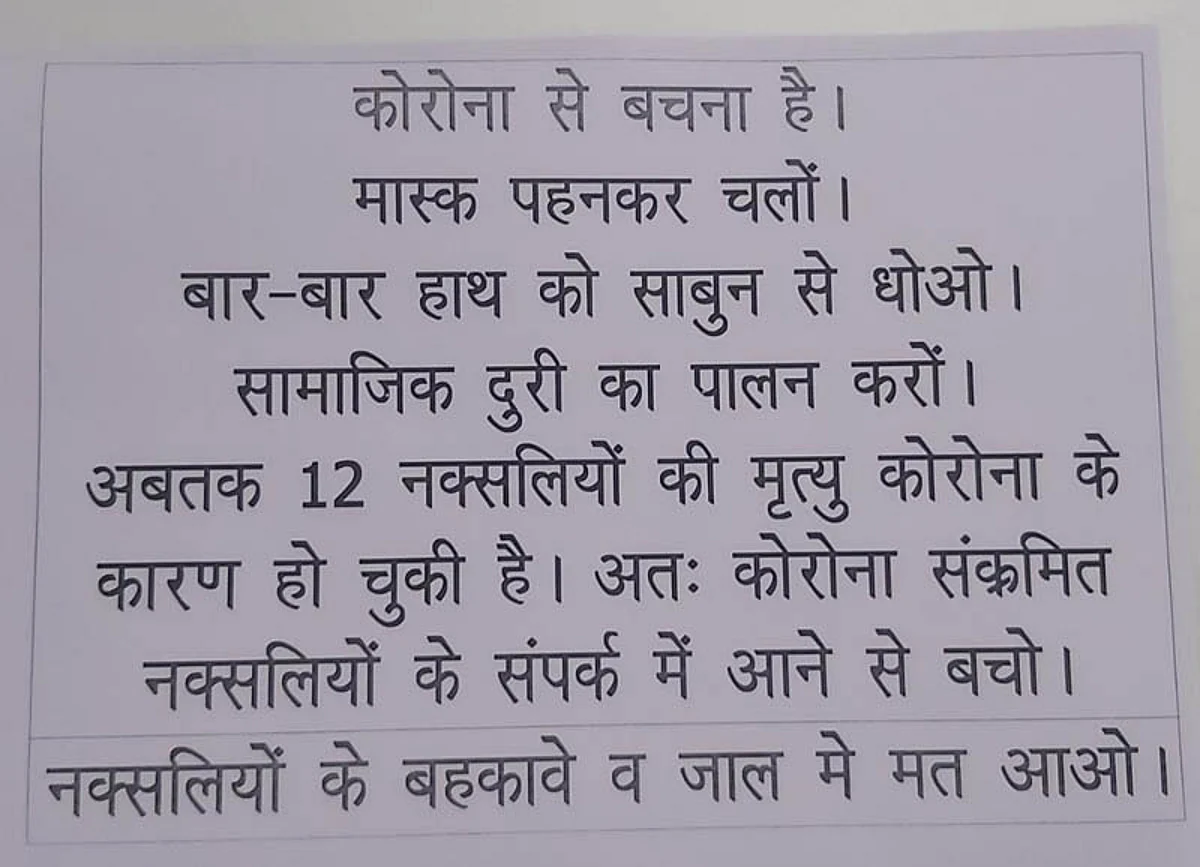 कोरोना से बचना है।
मास्क पहनकर चलों।
बार-बार हाथ को साबुन से धोओ।
सामाजिक दुरी का पालन करों।
अबतक 12 नक्सलियों की मृत्यु कोरोना के
कारण हो चुकी है। अतः कोरोना संक्रमित
नक्सलियों के संपर्क में आने से बचो।
नक्सलियों के बहकावे व जाल मे मत आओ।